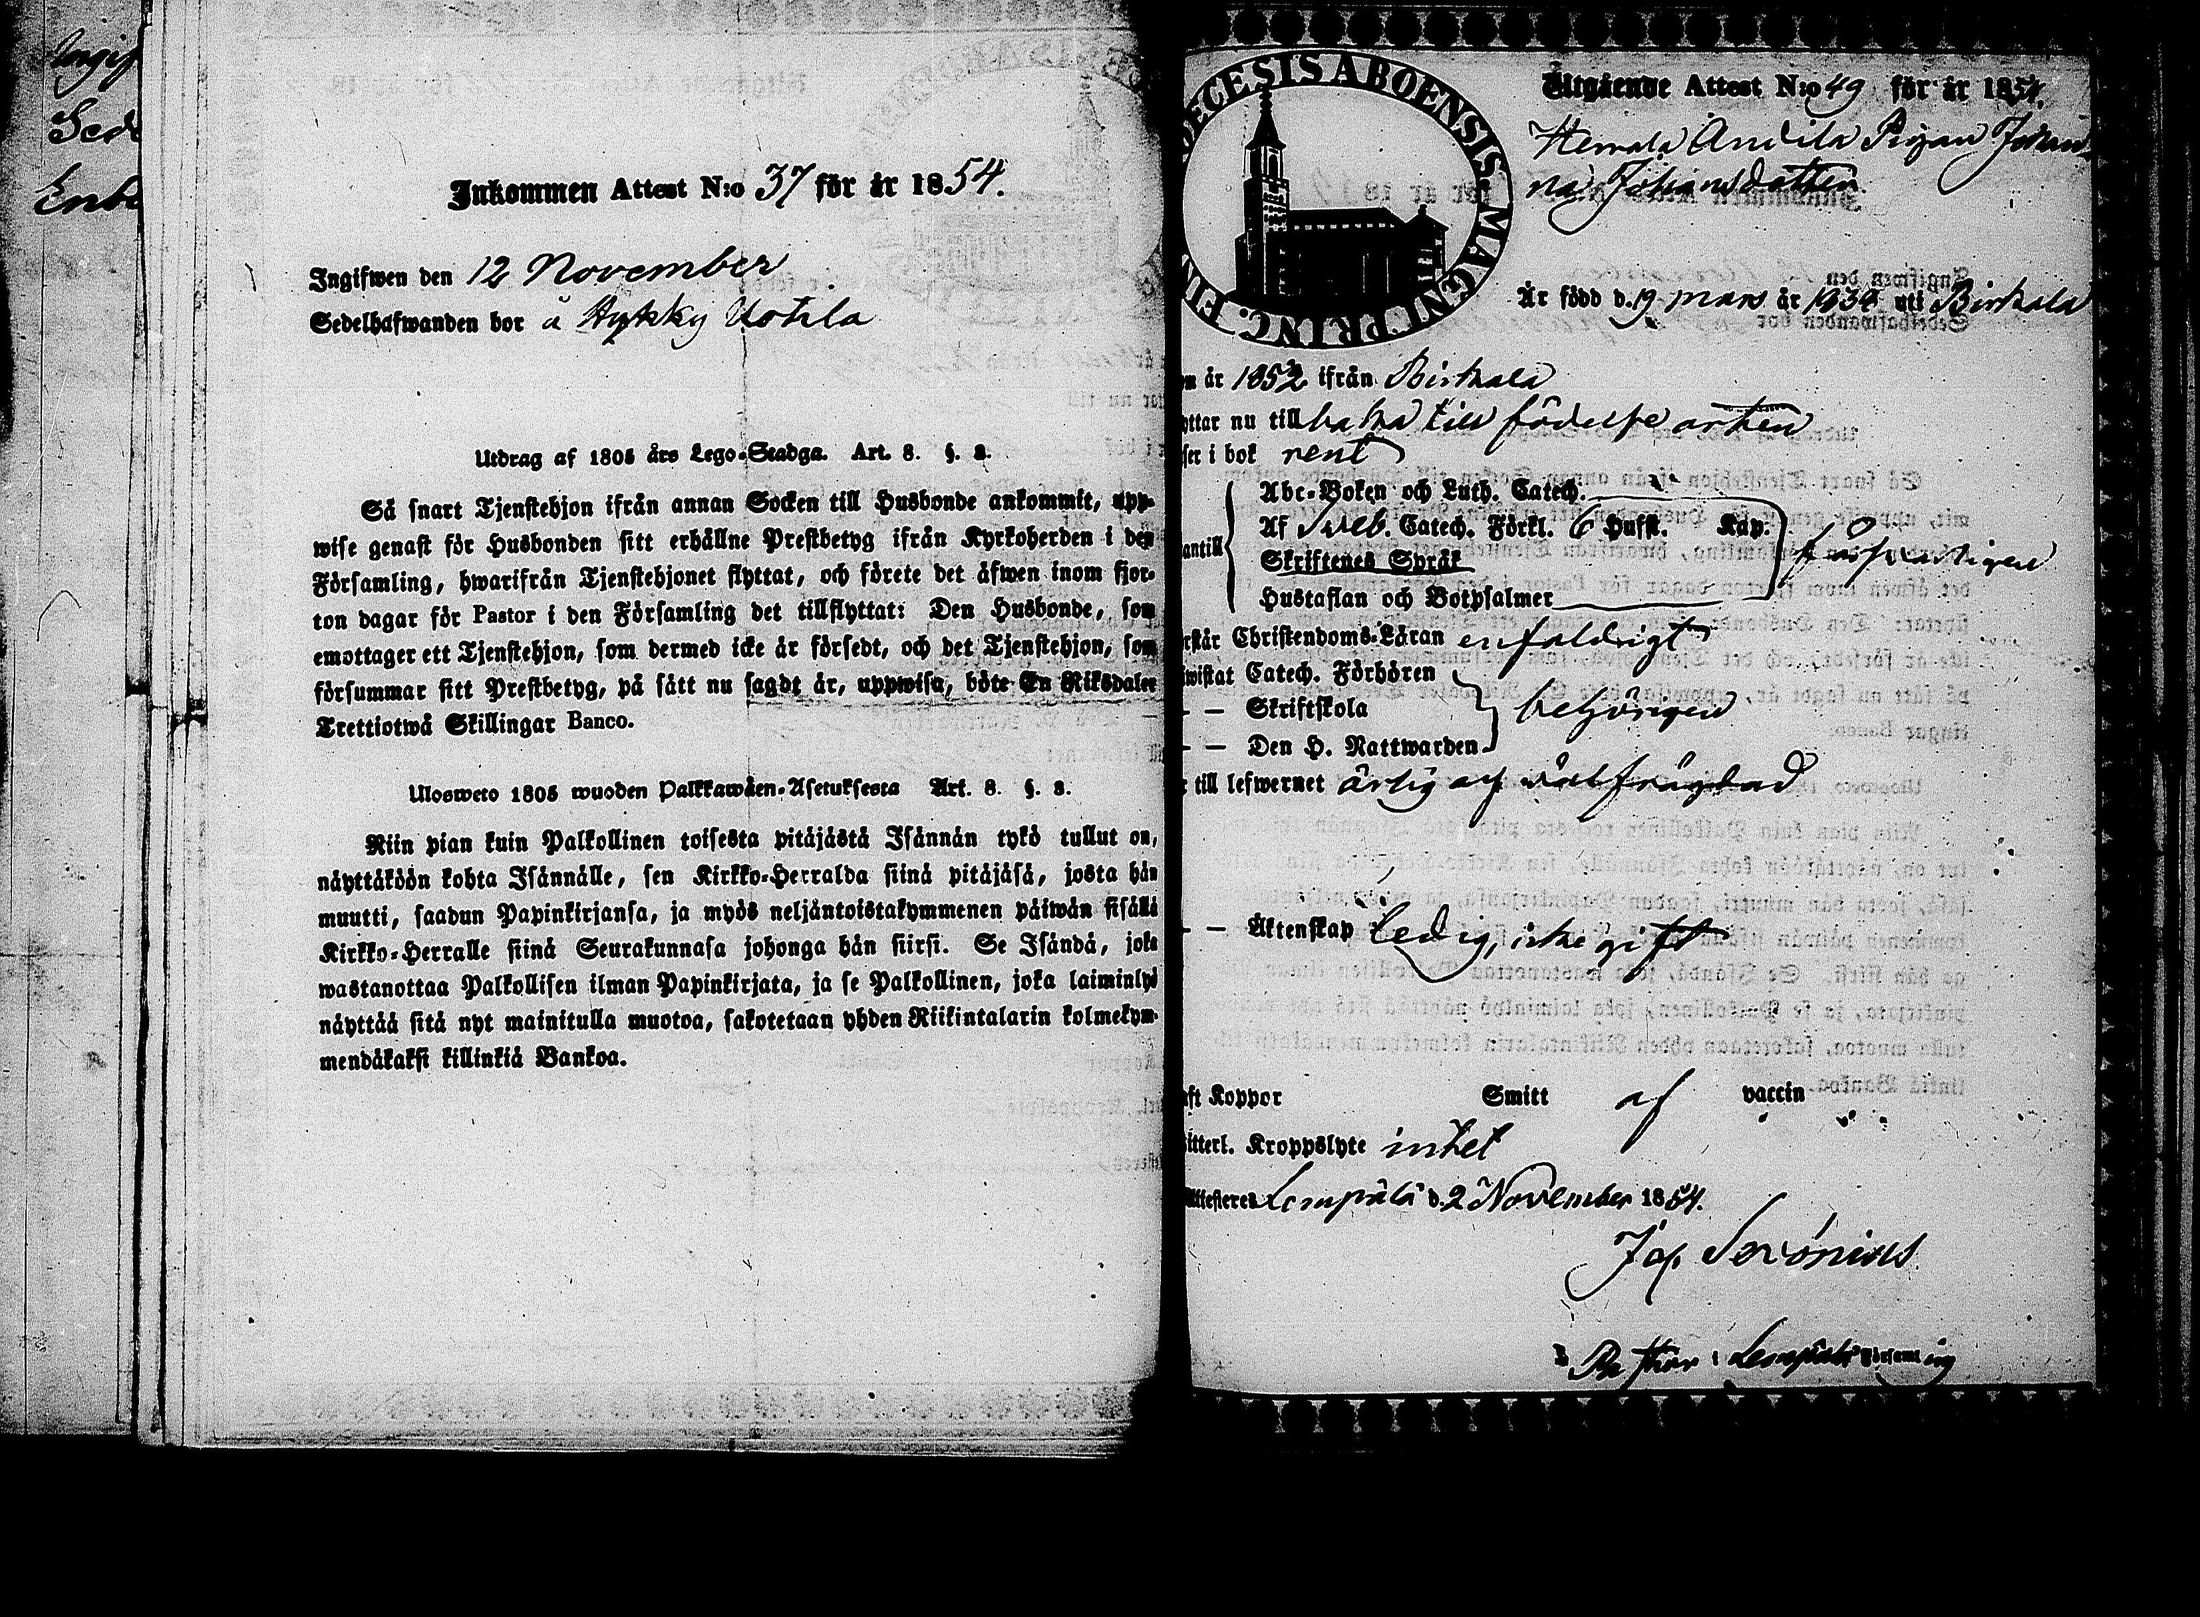 Ingif
Sede
Enb
Inkommen Attest N:o 37 för år 1854.
Ingifwen den 12 November
Sedelhafwanden bor å Hykky Uotila
Utdrag af 1805 års Lego-Stadga. Art. 8. §. 2.
Så snart Tjenstehjon ifrån annan Socken till Husbonde ankommit, upp-
wise genast för Husbonden sitt erhållne Prestbetyg ifrån Kyrkoherden i den
Församling, hwarifrån Tjenstehjonet flyttat, och förete det äfwen inom fjor-
ton dagar för Pastor i den Församling det tillflyttat: Den Husbonde, som
emottager ett Tjenstehjon, som dermed icke är försedt, och det Tjenstehjon, som
försummar sitt Prestbetyg, på sätt nu sagdt är, uppwisa, böte En Riksdaler
Trettiotwå Skillingar Banco.
Ulosweto 1805 wuoden Palkkawäen-Asetuksesta Art. 8. §. 2.
Niin pian kuin Palkollinen toisesta pitäjästä Isännän tykö tullut on,
näyttäköön kohta Isännälle, sen Kirkko-Herralda siinä pitäjäsä, josta hän
muutti, saadun Papinkirjansa, ja myös neljäntoistakymmenen päiwän sisällä
Kirkko-Herralle siinä Seurakunnasa johonga hän siirsi. Se Isändä, joka
wastanottaa Palkollisen ilman Papinkirjata, ja se Palkollinen, joka laiminlyö
näyttää sitä nyt mainitulla muotoa, sakotetaan yhden Riikintalarin kolmekym-
mendäkaksi killinkiä Bankoa.
DECESIS ABOENSIS MAGNI PRINC. FIN
Utgående Attest N:o 49 för år 1854.
Hemala Anttila Pigan Johan-
na Johansdotter
Är född d. 19 mars år 1834 uti Birkala
år 1852 ifrån Birkala
ttar nu tillbaka till födelse orten
ser i bok rent
Abc-Boken och Luth. Catech.
antill Af Sveb. Catech. Förkl. 6 Hufst. Kap. försvarligen
Skriftenes Språk
Hustaflan och Botpsalmer
rstår Christendoms-Läran enfaldigt
wistat Catech. Förhören
— — Skriftskola behörigen
— — Den H. Nattwarden
till lefwernet ärlig och välfrägdad
— — Äktenskap ledig, icke gift
ft Koppor Smitt af vaccin
itterl. Kroppslyte intet
Attesteres Lempälä d. 2 November 1854.